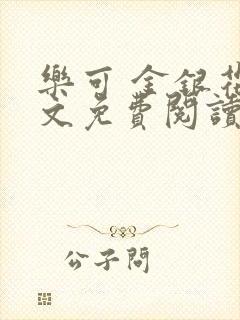 樂可 金銀花
文免費閱讀
公子問